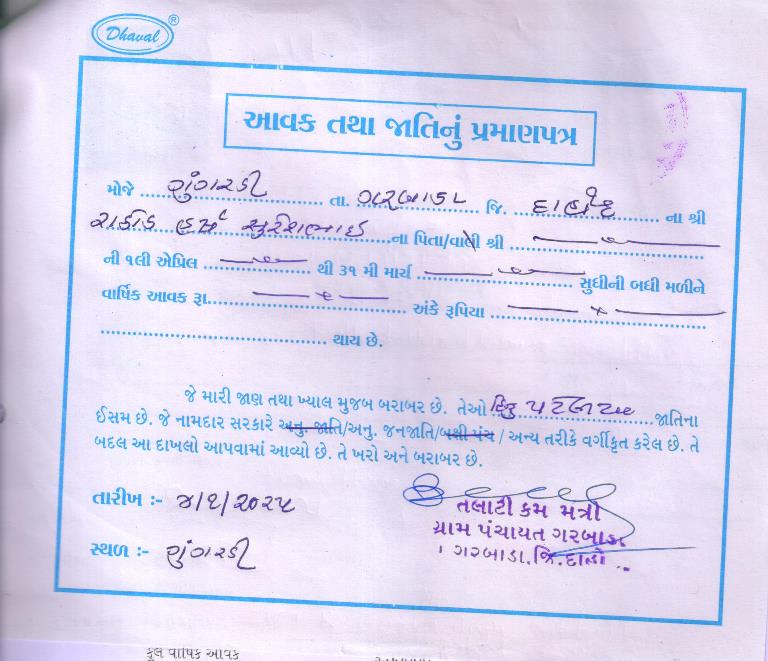 Dhaval ®
આવક તથા જાતિનું પ્રમાણપત્ર
મોજે ગુંગરડી તા. ગરબાડા જિ. દાહોદ ના શ્રી
રાઠોડ સુરેશભાઈ ના પિતા/વાલી શ્રી
ની ૧લી એપ્રિલ થી ૩૧ મી માર્ચ સુધીની બધી મળીને
વાર્ષિક આવક રૂા. અંકે રૂપિયા
થાય છે.
જે મારી જાણ તથા ખ્યાલ મુજબ બરાબર છે. તેઓ હિન્દુ જાતિના
ઈસમ છે. જે નામદાર સરકારે અનુ. જાતિ/અનુ. જનજાતિ/બક્ષી પંચ / અન્ય તરીકે વર્ગીકૃત કરેલ છે. તે
બદલ આ દાખલો આપવામાં આવ્યો છે. તે ખરો અને બરાબર છે.
તારીખ :- ૪/૧/૨૦૨૫
સ્થળ :- ગુંગરડી
તલાટી કમ મંત્રી
ગ્રામ પંચાયત ગરબાડા
ગરબાડા.જિ.દાહો
કુલ વાર્ષિક આવક